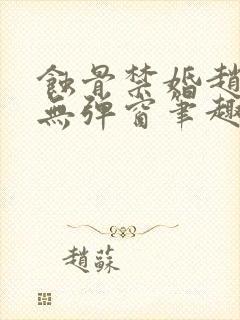 蝕骨禁婚趙
無弹窗筆趣
趙蘇